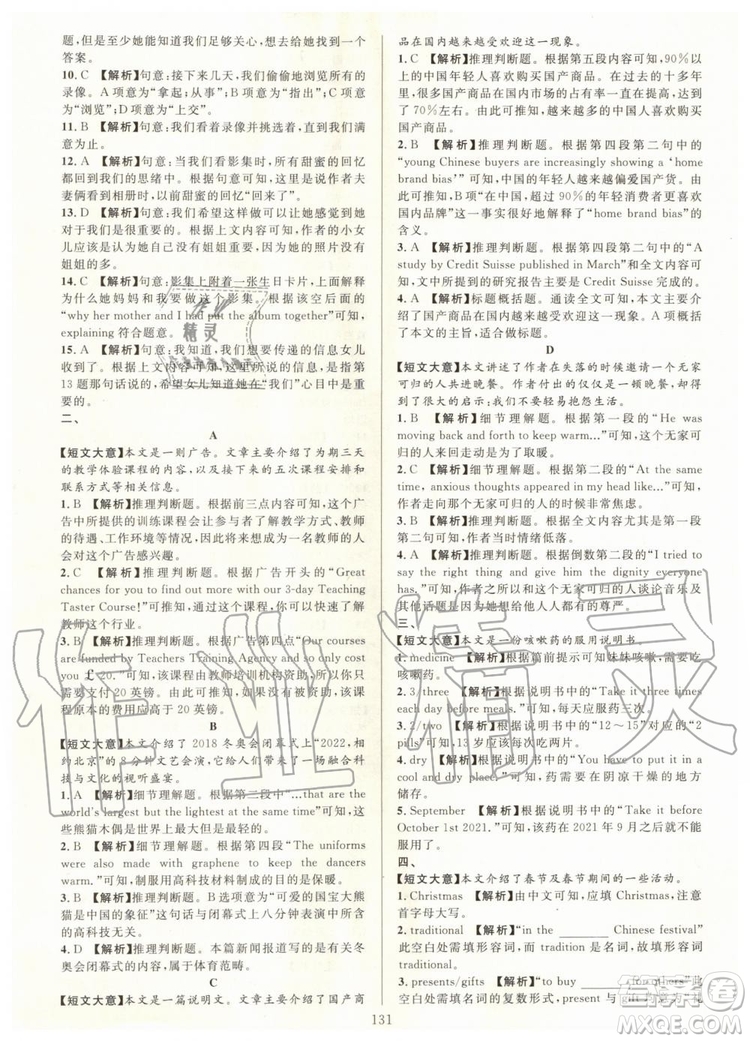 题，但是至少她能知道我们足够关心，会去寻找问题的
答案。
10. C 【解析】句意：接下来几天，我们偷偷地浏览所有
的录像。A项意为“拿起；从事”；B项意为“指出”；C项意
为“浏览”；D项意为“上交”。
11. B 【解析】句意：我们看着录像并挑选着，直到我们
满意为止。
12. A 【解析】句意：当我们看影集时，所有甜蜜的回忆
都回到了我们的思绪中。根据上下文可知，这里说作者夫
妻俩看影集时，以前甜蜜的回忆“回来了”。
13. D 【解析】句意：我们希望这样做可以让她感到她对
于我们是多么重要。根据上下文内容可知，作者的小女
儿应该是认为她自己没有姐姐重要，因为她的照片没有
姐姐的多。
14. C 【解析】句意：影集上附着一张生日卡片，上面解释
为什么她妈妈和我要做这个影集。根据该空后面的
“why her mother and I had put the album together”可知，
explaining 符合题意。
15. A 【解析】句意：我知道，我们想要传递的信息女儿
是可以清楚地接收到的。根据上下文内容可知，这里是指
第13题那句话说的，希望女儿知道她在“我们”心目中是重
要的。
二、
A
【短文大意】本文是一则广告。文章主要介绍了为期三天
的教学体验课程的内容，以及接下来的五次课程安排和
联系方式等相关信息。
1. B 【解析】推理判断题。根据前三点内容可知，这个广
告中所提供的训练课程会让参与者了解教学方式、教师
的待遇、工作环境等情况，因此一名想成为一名教师的人
会对这个广告感兴趣。
2. C 【解析】推理判断题。根据广告开头的“Great
chances for you to find out more with our 3-day Teaching
Taster Course!”可知，通过这个课程，你可以更多地了解
教师这个行业。
3. B 【解析】推理判断题。根据广告第四点“Our courses
are funded by Teachers Training Agency and so only cost
you ￡20.”可知，该课程由教师培训机构资助，所以该课
程原本的费用应高于20英镑。
B
【短文大意】本文介绍了2018冬奥会闭幕式上“2022，相
约北京”的8分钟文艺会演，给大家带来了一场融合科
技与文化的视听盛宴。
1. A 【解析】细节理解题。根据第二段中“...that are the
world's largest but the lightest at the same time”可知，这
些熊猫木偶是世界上最大，也是最轻的。
2. D 【解析】细节理解题。根据第三段“The uniforms
were also made with graphene to keep the dancers
warm.”可知，制服用高科技材料制成的目的是保暖。
3. B 【解析】推理判断题。B选项意为“可爱的国宝大熊
猫是中国的象征”这句话与闭幕式上八分钟表演中所用
的高科技无关。
4. D 【解析】推理判断题。本篇新闻报道写的是有关冬
奥会闭幕式的内容，因此属于体育范畴。
C
【短文大意】本文是一篇说明文。文章主要介绍了国产商
品在国内越来越受欢迎这一现象。
1. C 【解析】推理判断题。根据第五段内容可知，90%以
上的中国年轻人喜欢购买国产商品。在过去的十多年
里，只喜欢购买国产商品的消费者也从15%左右上升到
了70%左右。由此可知，越来越多的中国人喜欢购买
国产商品。
2. B 【解析】推理判断题。根据第四段第二句中的
“young Chinese buyers are increasingly showing a ‘home
brand bias’”可知，中国的年轻人越来越偏爱国产货。因
此可推知，B项“越来越多的90后年轻消费者更喜欢买
国内品牌”一事实很好地解释了“home brand bias”。
3. A 【解析】推理判断题。根据第四段第二句中的“A
study by Credit Suisse published in March”和全文内容可
知，文中所提到的研究报告是由Credit Suisse完成的。
4. A 【解析】标题概括题。通读全文可知，本文主要介
绍了国产商品在国内越来越受欢迎这一现象。A项概括
了本文的主旨，适合做标题。
D
【短文大意】本文讲述了作者在失落的时候邀请一个无家
可归的人共进晚餐。作者付出的仅仅是一顿晚餐，却收
获到了极大的快乐，并重新燃起对生活的希望。
1. B 【解析】细节理解题。根据第一段的“He was
moving back and forth to keep warm...”可知，这个无家可
归的人来回走动是为了取暖。
2. C 【解析】细节理解题。根据第二段的“At the same
time, anxious thoughts appeared in my head like...”可
知，作者走向无家可归的人的时候非常焦虑。
3. B 【解析】推理判断题。根据全文内容尤其是第一段
第二句可知，作者当时情绪低落。
4. A 【解析】细节理解题。根据倒数第二段的“I tried to
say the right thing and give him the dignity everyone
has.”可知，作者之所以与无家可归的人谈论音乐及
其他话题是因为想给他每个人都有的尊严。
三、
【短文大意】本文是一份咳嗽药的服用说明书。
1. medicine 【解析】根据前面提示可知妹妹咳嗽，需要吃
咳嗽药。
2. 3/three 【解析】根据说明书中的“Take it three times
each day after meals.”可知，每天应服药三次。
3. 2/two 【解析】根据说明书中的“12～15”对应的“2
pills”可知，应服用两片。
4. dry 【解析】根据说明书中的“You have to put it in a
cool and dry place.”可知，药需要在阴凉干燥的地方
储存。
5. September 【解析】根据说明书中的“Take it before
October 1st 2021.”可知，该药在2021年9月之后就不能
服用了。
四、
【短文大意】本文介绍了春节及春节期间的一些活动。
1. Christmas 【解析】由中文可知，应填Christmas，注意
首字母大写。
2. traditional 【解析】“in the ______ Chinese festival”
此空白处需填形容词，而 tradition 是名词，故填形容词
traditional.
3. presents/gifts 【解析】“to buy ______ for others”此
空白处需填名词的复数形式，present 与 gift 的意为
131